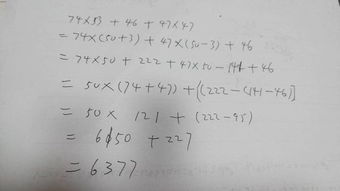 74×53 + 46 + 47×47
= 74×(50+3) + 47×(50-3) + 46
= 74×50 + 222 + 47×50 - 141 + 46
= 50×(74+47) + [(222 - (141-46)]
= 50× 121 + (222-95)
= 6150 + 227
= 6377